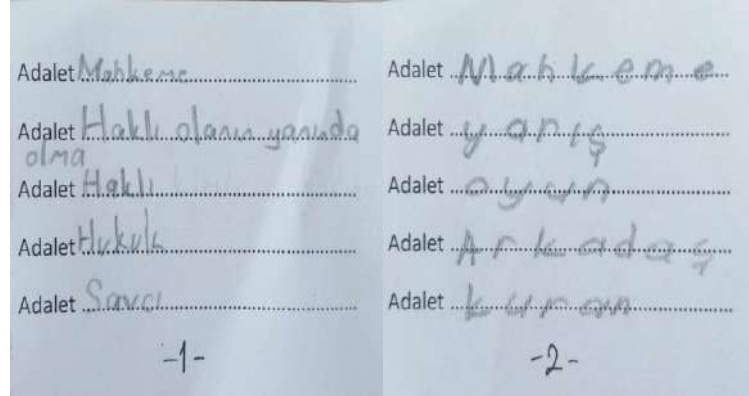 Adalet Mahkeme
Adalet Haklı olanın yanında
olma
Adalet Haklı
Adalet Hukuk
Adalet Savcı
-1-
Adalet Mahkeme
Adalet yarış
Adalet oyun
Adalet Arkadaş
Adalet kuran
-2-